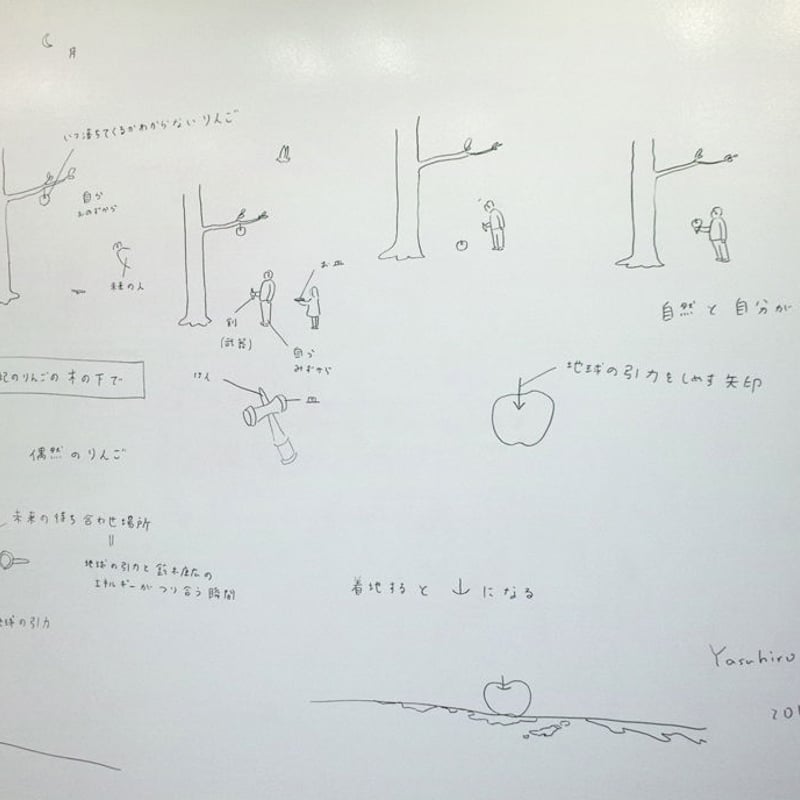 月
いつ落ちてくるかわからないりんご
自ら
おのずから
未来の人
お皿
剣
(武器)
自ら
みずから
自然と自分が
けん
皿
記のりんごの木の下で
地球の引力をしめす矢印
偶然のりんご
未来の待ち合わせ場所
地球の引力と鈴木康広の
エネルギーがつり合う瞬間
地球の引力
着地すると ↓ になる
Yasuhiro
201